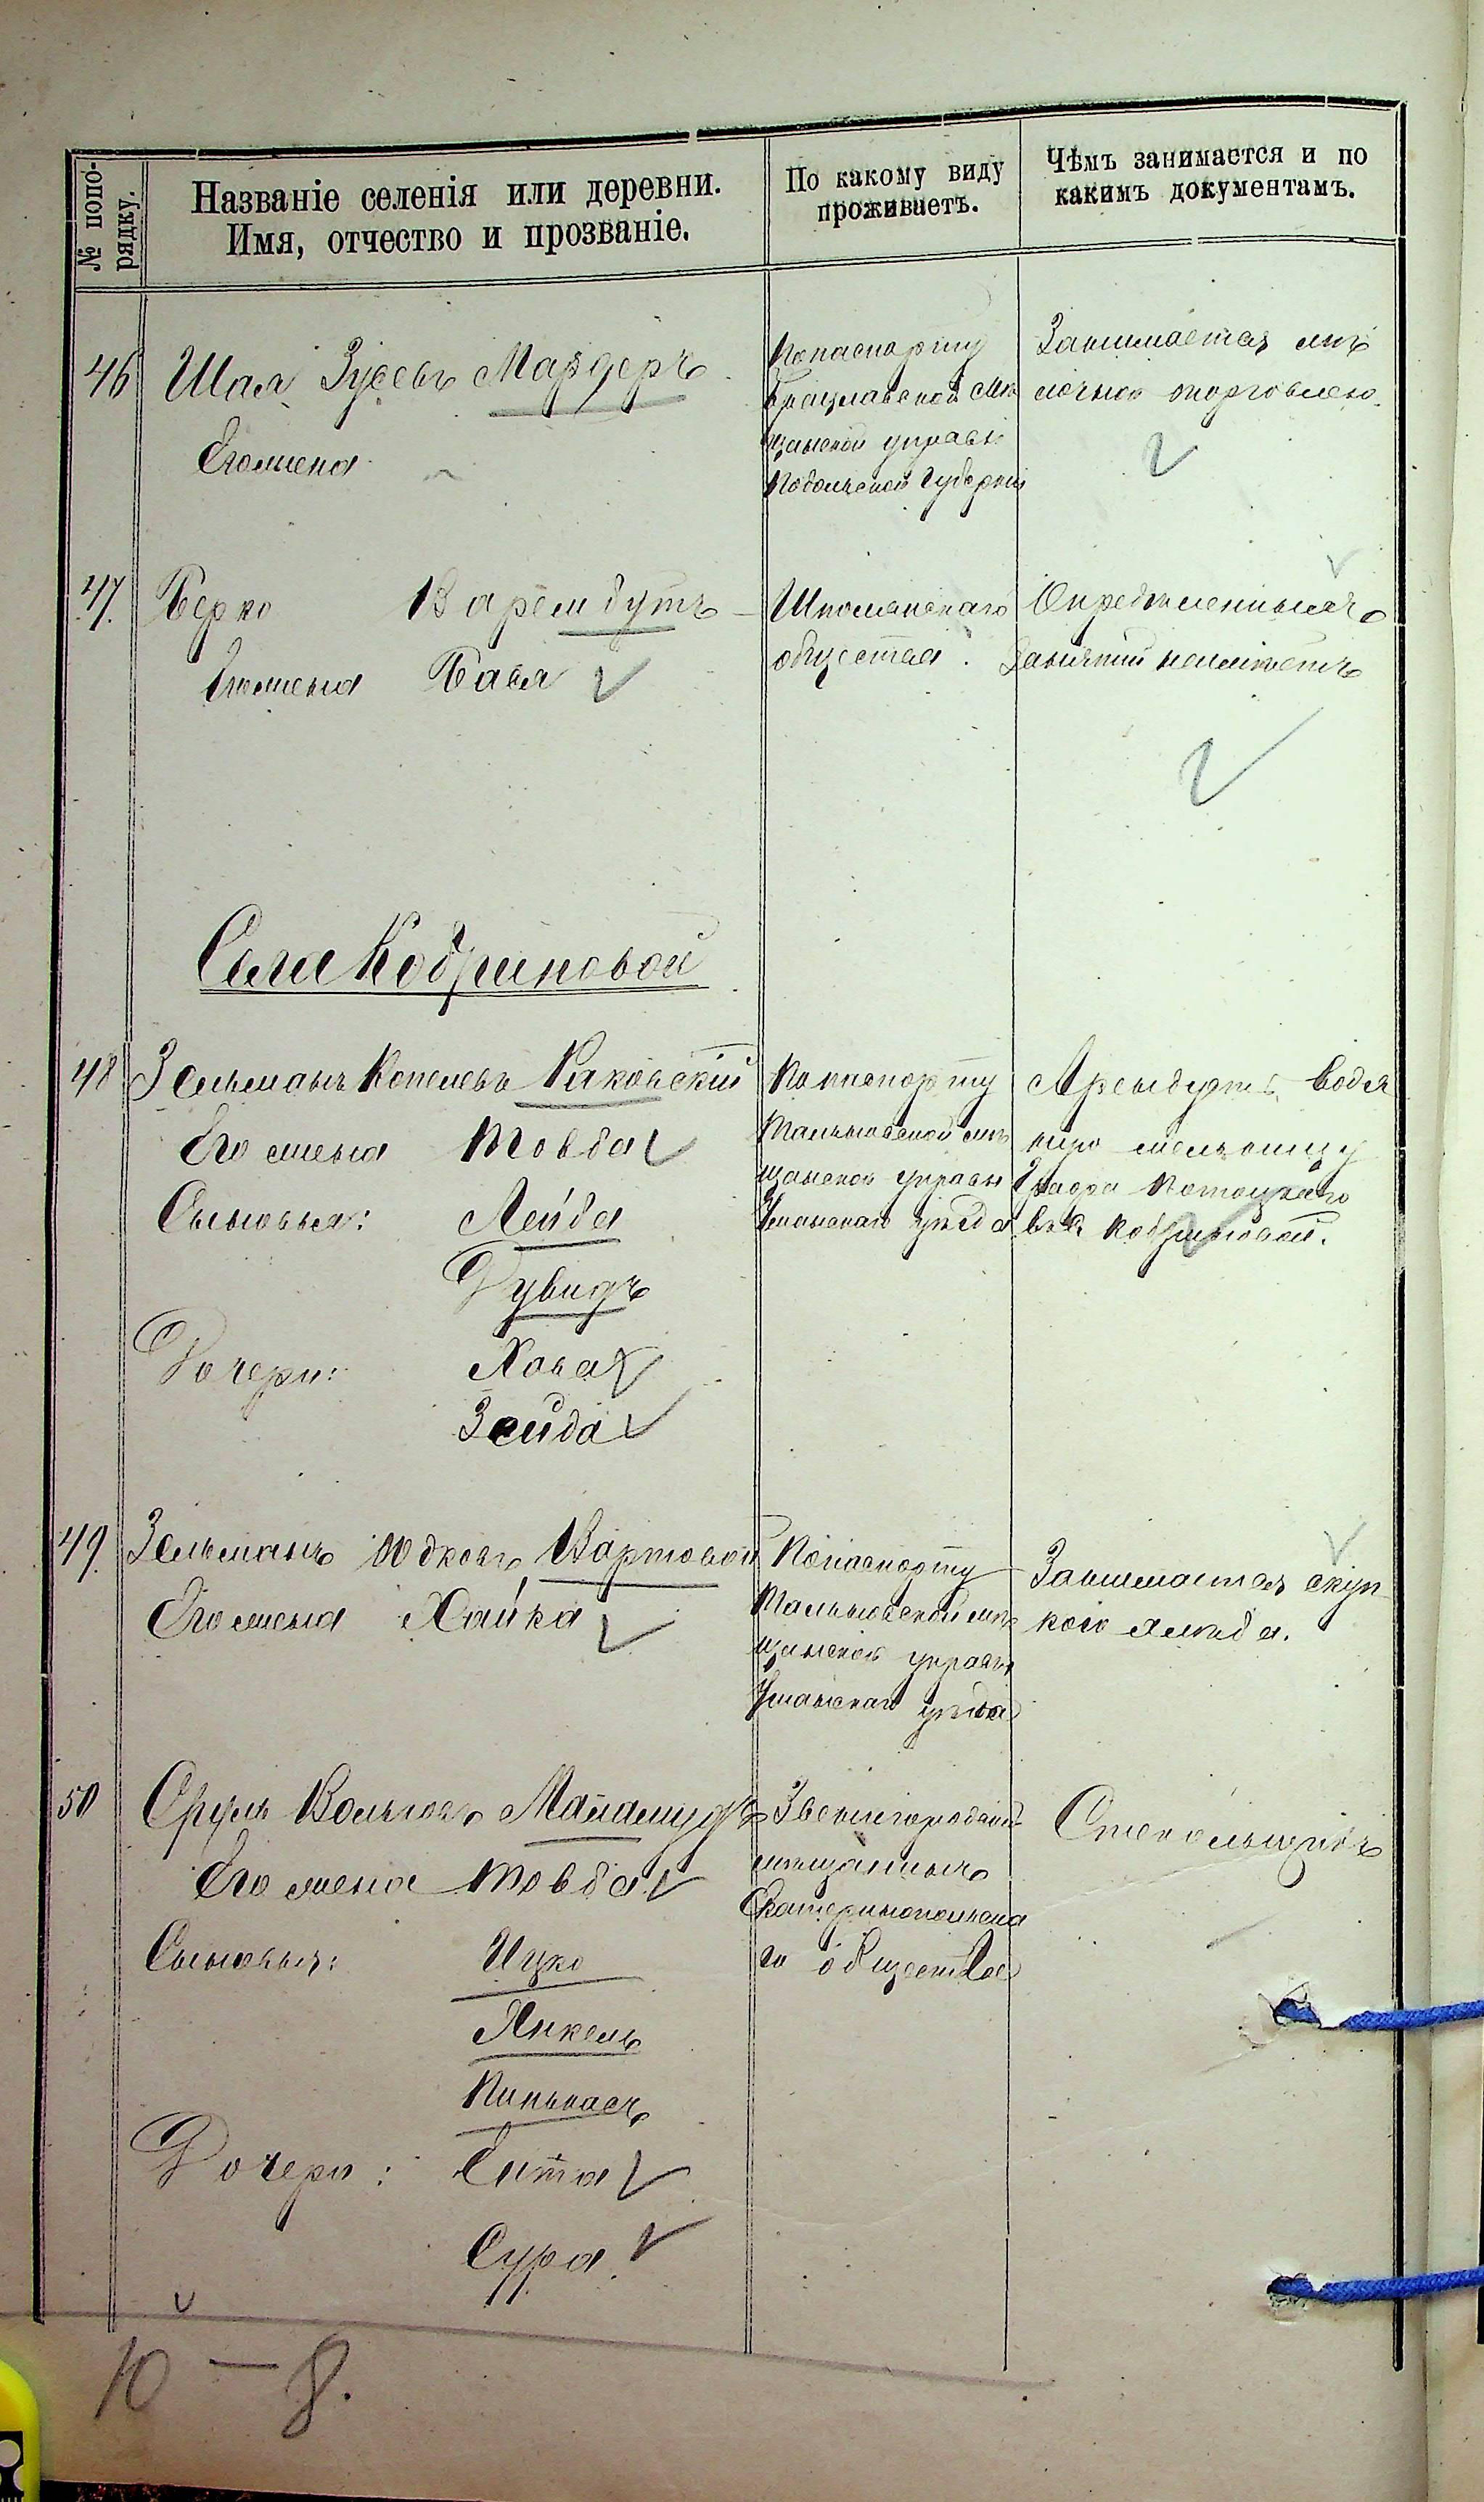 № попо-
рядку.
Названіе селенія или деревни.
Имя, отчество и прозваніе.
По какому виду
проживаетъ.
Чѣмъ занимается и по
какимъ документамъ.
46
Шая Зусевъ Мардеръ
Его жена
По паспорту
Брацлавской мѣ
щанской управы
Подольской Губерніи
Занимается мѣ
лочною торговлею.
47.
Берко
Его жена Бася
Шполянскаго
общества.
Опредѣленныхъ
занятій неимѣетъ
Села Кобриновой
48
Зельманъ Копелевъ Раковскій
Его жена Товба
Сыновья: Лейба
Дувидъ
Дочери: Хова
Зейда
По паспорту
Тальновской мѣ
щанской управы
Уманскаго уѣзда
Арендуетъ водя
ную мельницу
Графа Потоцкаго
въ с. Кобриновой.
49.
Зельманъ Юдковъ Вартовой
Его жена Хайка
По паспорту
Тальновской мѣ
щанской управы
Уманскаго уѣзда
Занимается скуп
кою хлѣба.
50
Сруль Вольковъ
Его жена Товба
Сыновья: Ицко
Янкель
Пинькасъ
Дочери: Сита
Сура
Звенигородскій
мѣщанинъ
Екатеринопольска
го общества
Стекольщикъ
10 — 8.